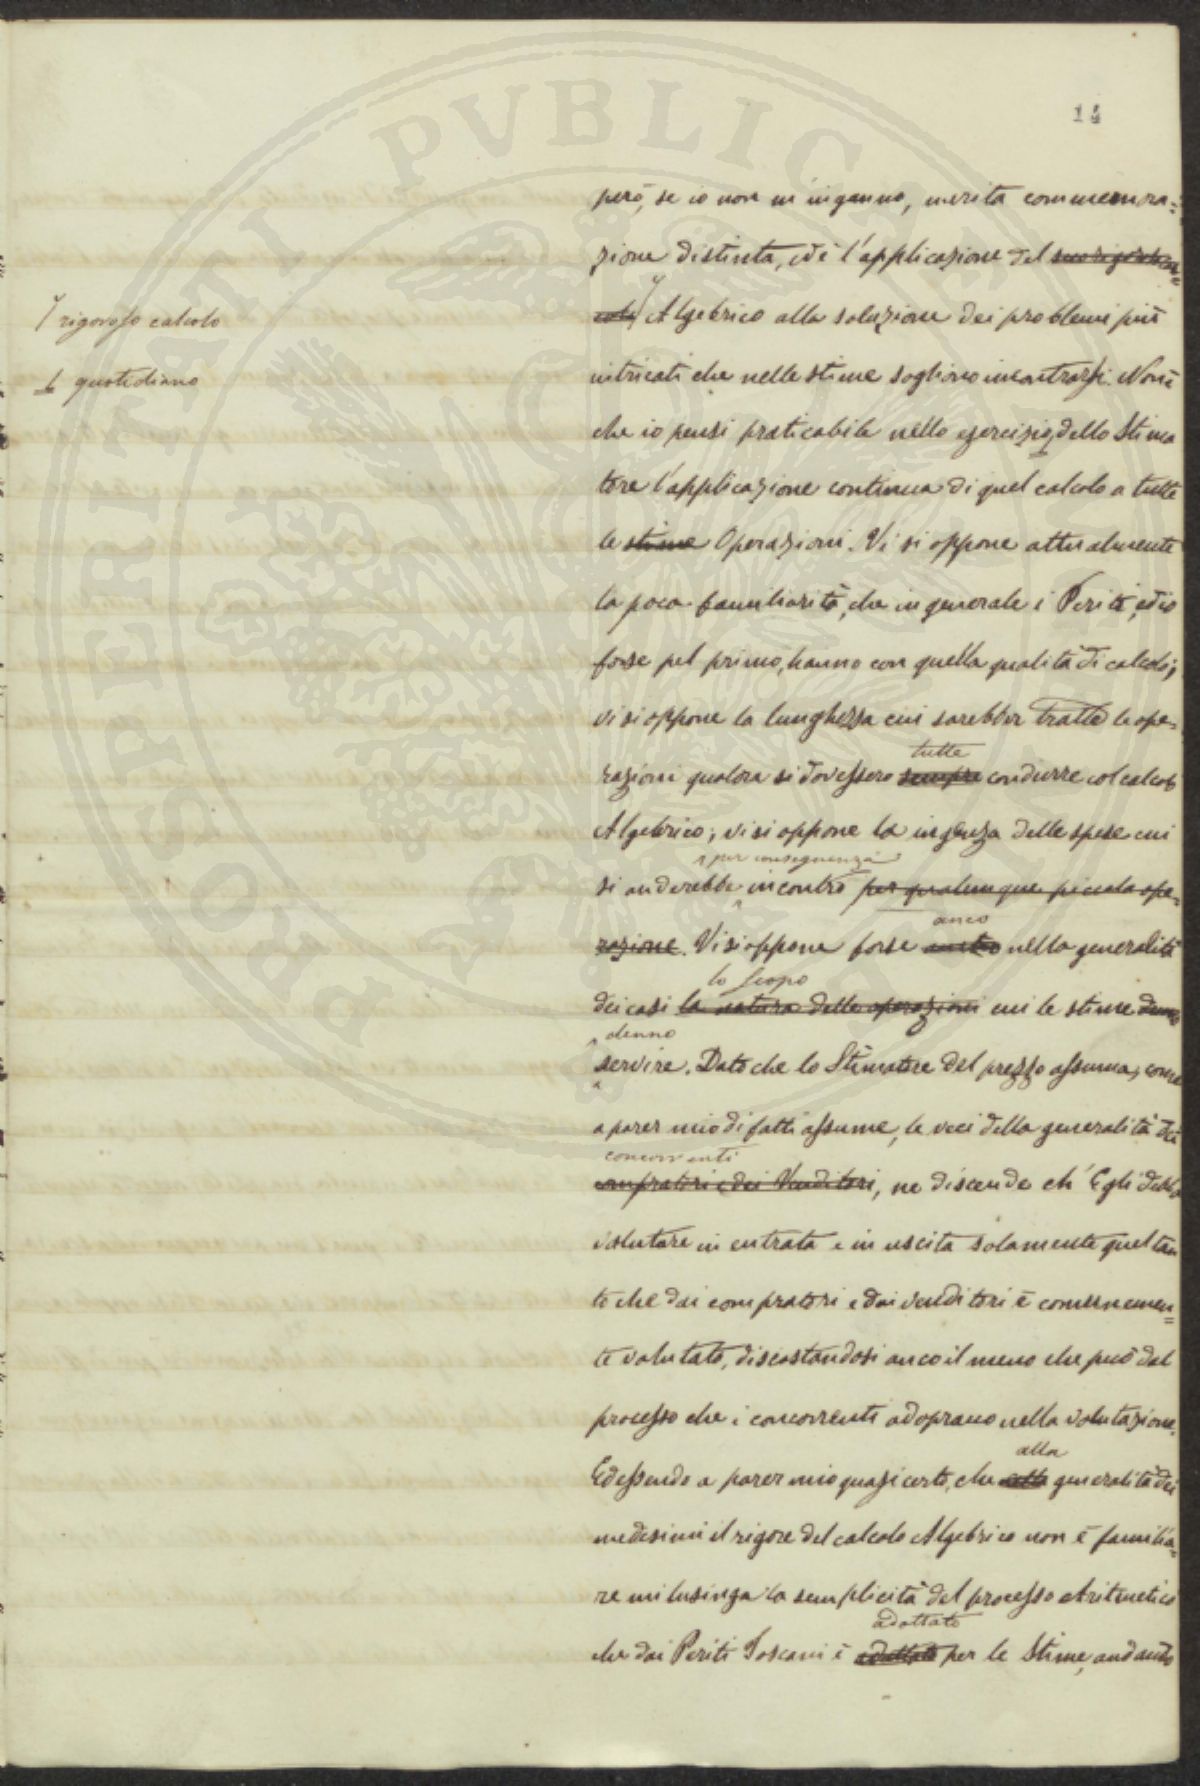 14
però, se io non m'inganno, merita commemora=
zione distinta, ed è l'applicazione del
Algebrico alla soluzione dei problemi più
rigoroso calcolo
intricati che nelle stime sogliono incontrarsi. Non è
quotidiano
che io pensi praticabile nello esercizio dello Stima
tore l'applicazione continua di quel calcolo a tutte
le stime Operazioni. Vi si oppone attualmente
la poca familiarità, che in generale i Periti, ed io
forse pel primo, hanno con quella qualità di calcolo;
vi si oppone la lunghezza cui sarebber tratte le ope=
tutte
razioni qualora si dovessero sempre condurre col calcolo
Algebrico; vi si oppone la ingenza delle spese cui
per conseguenza
si anderebbe incontro per qualunque piccola ope=
anco
razione. Vi si oppone forse nella generalità
lo scopo
dei casi la natura delle operazioni cui le stime
denno
servire. Dato che lo Stimatore del prezzo assuma, come
a parer mio di fatti assume, le veci della generalità dei
concorrenti
compratori e dei Venditori, ne discende ch'Egli debba
valutare in entrata e in uscita solamente quel tan
to che dai compratori e dai venditori è comunemen=
te valutato, discostandosi anco il meno che può dal
processo che i concorrenti adoprano nella valutazione.
alla
Ed essendo a parer mio quasi certo, che generalità dei
medesimi il rigore del calcolo Algebrico non è familia=
re mi lusinga la semplicità del processo Aritmetico
adottato
che dai Periti Toscani è adottato per le Stime, andando
PROSPERITATI PVBLICAE